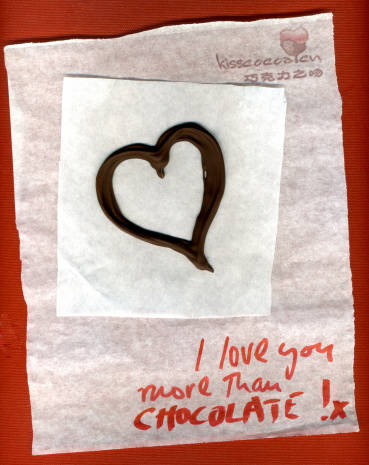 巧克力之吻
I love you
more than
CHOCOLATE !x